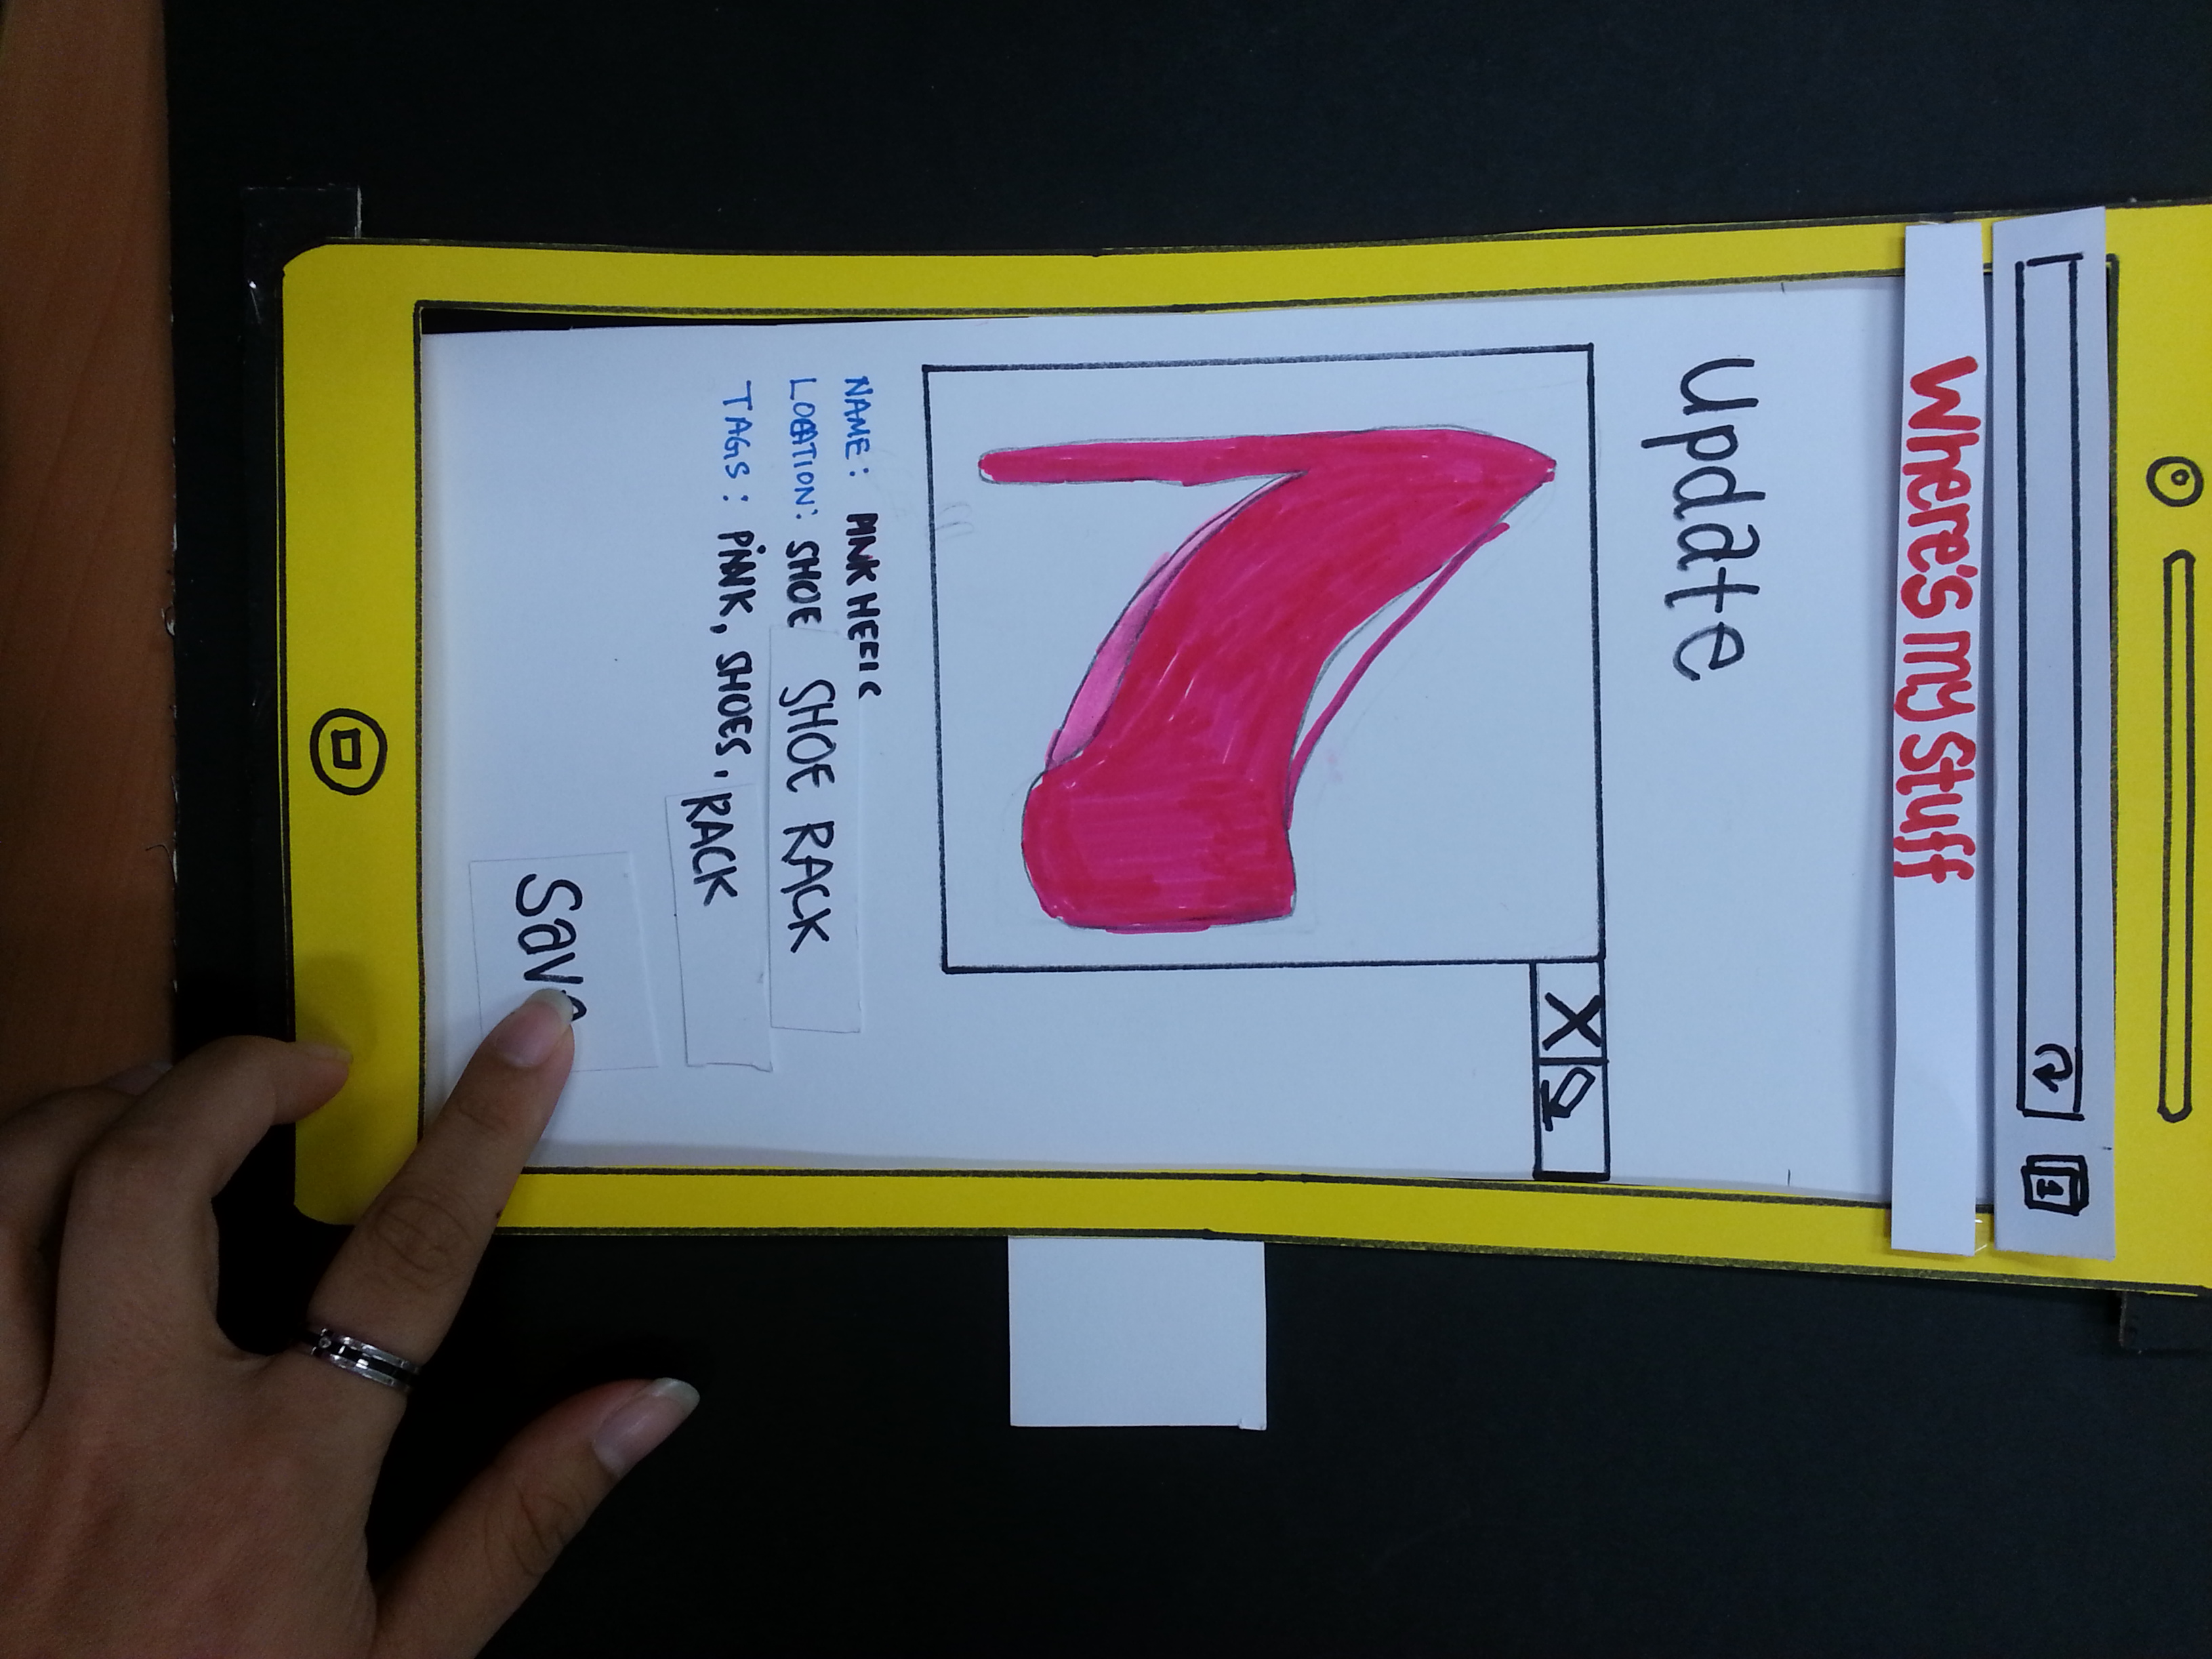 Where's my Stuff
Update
X
NAME: PINK HEELS
LOCATION: SHOE SHOE RACK
TAGS: PINK, SHOES, RACK
Save